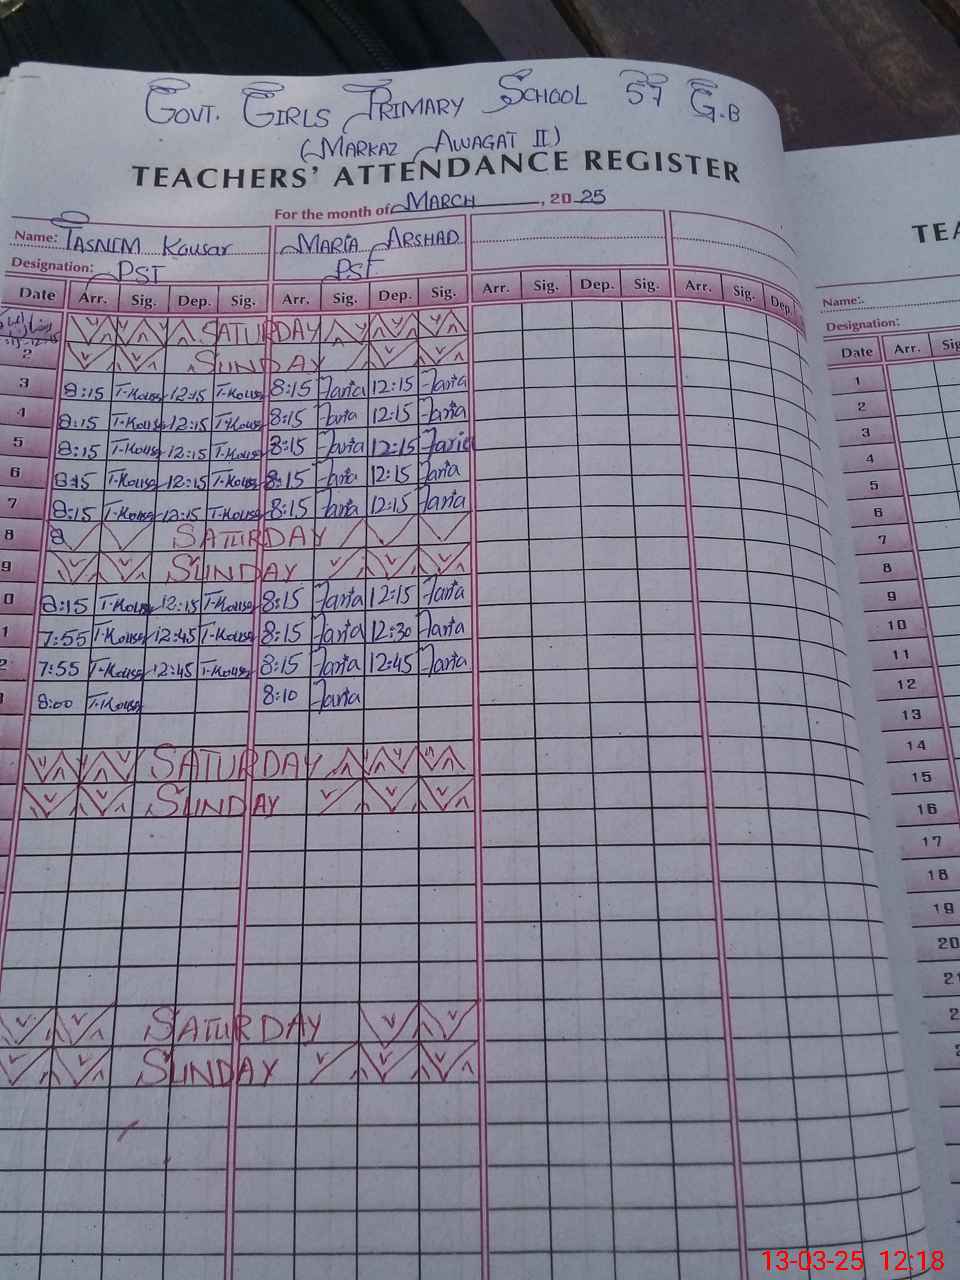 GOVT. GIRLS PRIMARY SCHOOL 57 G.B
(MARKAZ AWAGAT II)
TEACHERS' ATTENDANCE REGISTER
For the month of MARCH, 20 25
Name: TASNIM Kausar MARIA ARSHAD
Designation: PST PST
Date Arr. Sig. Dep. Sig. Arr. Sig. Dep. Sig. Arr. Sig. Dep. Sig. Arr. Sig. Dep.
SATURDAY
2 SUNDAY
3 8:15 T-Kouser 12:15 T-Kouser 8:15 Maria 12:15 Maria
4 8:15 T-Kouser 12:15 T-Kouser 8:15 Maria 12:15 Maria
5 8:15 T-Kouser 12:15 T-Kouser 8:15 Maria 12:15 Maria
6 8:15 T-Kouser 12:15 T-Kouser 8:15 Maria 12:15 Maria
7 8:15 T-Kouser 12:15 T-Kouser 8:15 Maria 12:15 Maria
8 8 SATURDAY
9 SUNDAY
0 8:15 T-Kouser 12:15 T-Kouser 8:15 Maria 12:15 Maria
1 7:55 T-Kouser 12:45 T-Kouser 8:15 Maria 12:30 Maria
2 7:55 T-Kouser 12:45 T-Kouser 8:15 Maria 12:45 Maria
8:00 T-Kouser 8:10 Maria
SATURDAY
SUNDAY
SATURDAY
SUNDAY
TEA
Name:
Designation:
Date Arr. Sig
1
2
3
4
5
6
7
8
9
10
11
12
13
14
15
16
17
18
19
20
21
2
13-03-25 12:18